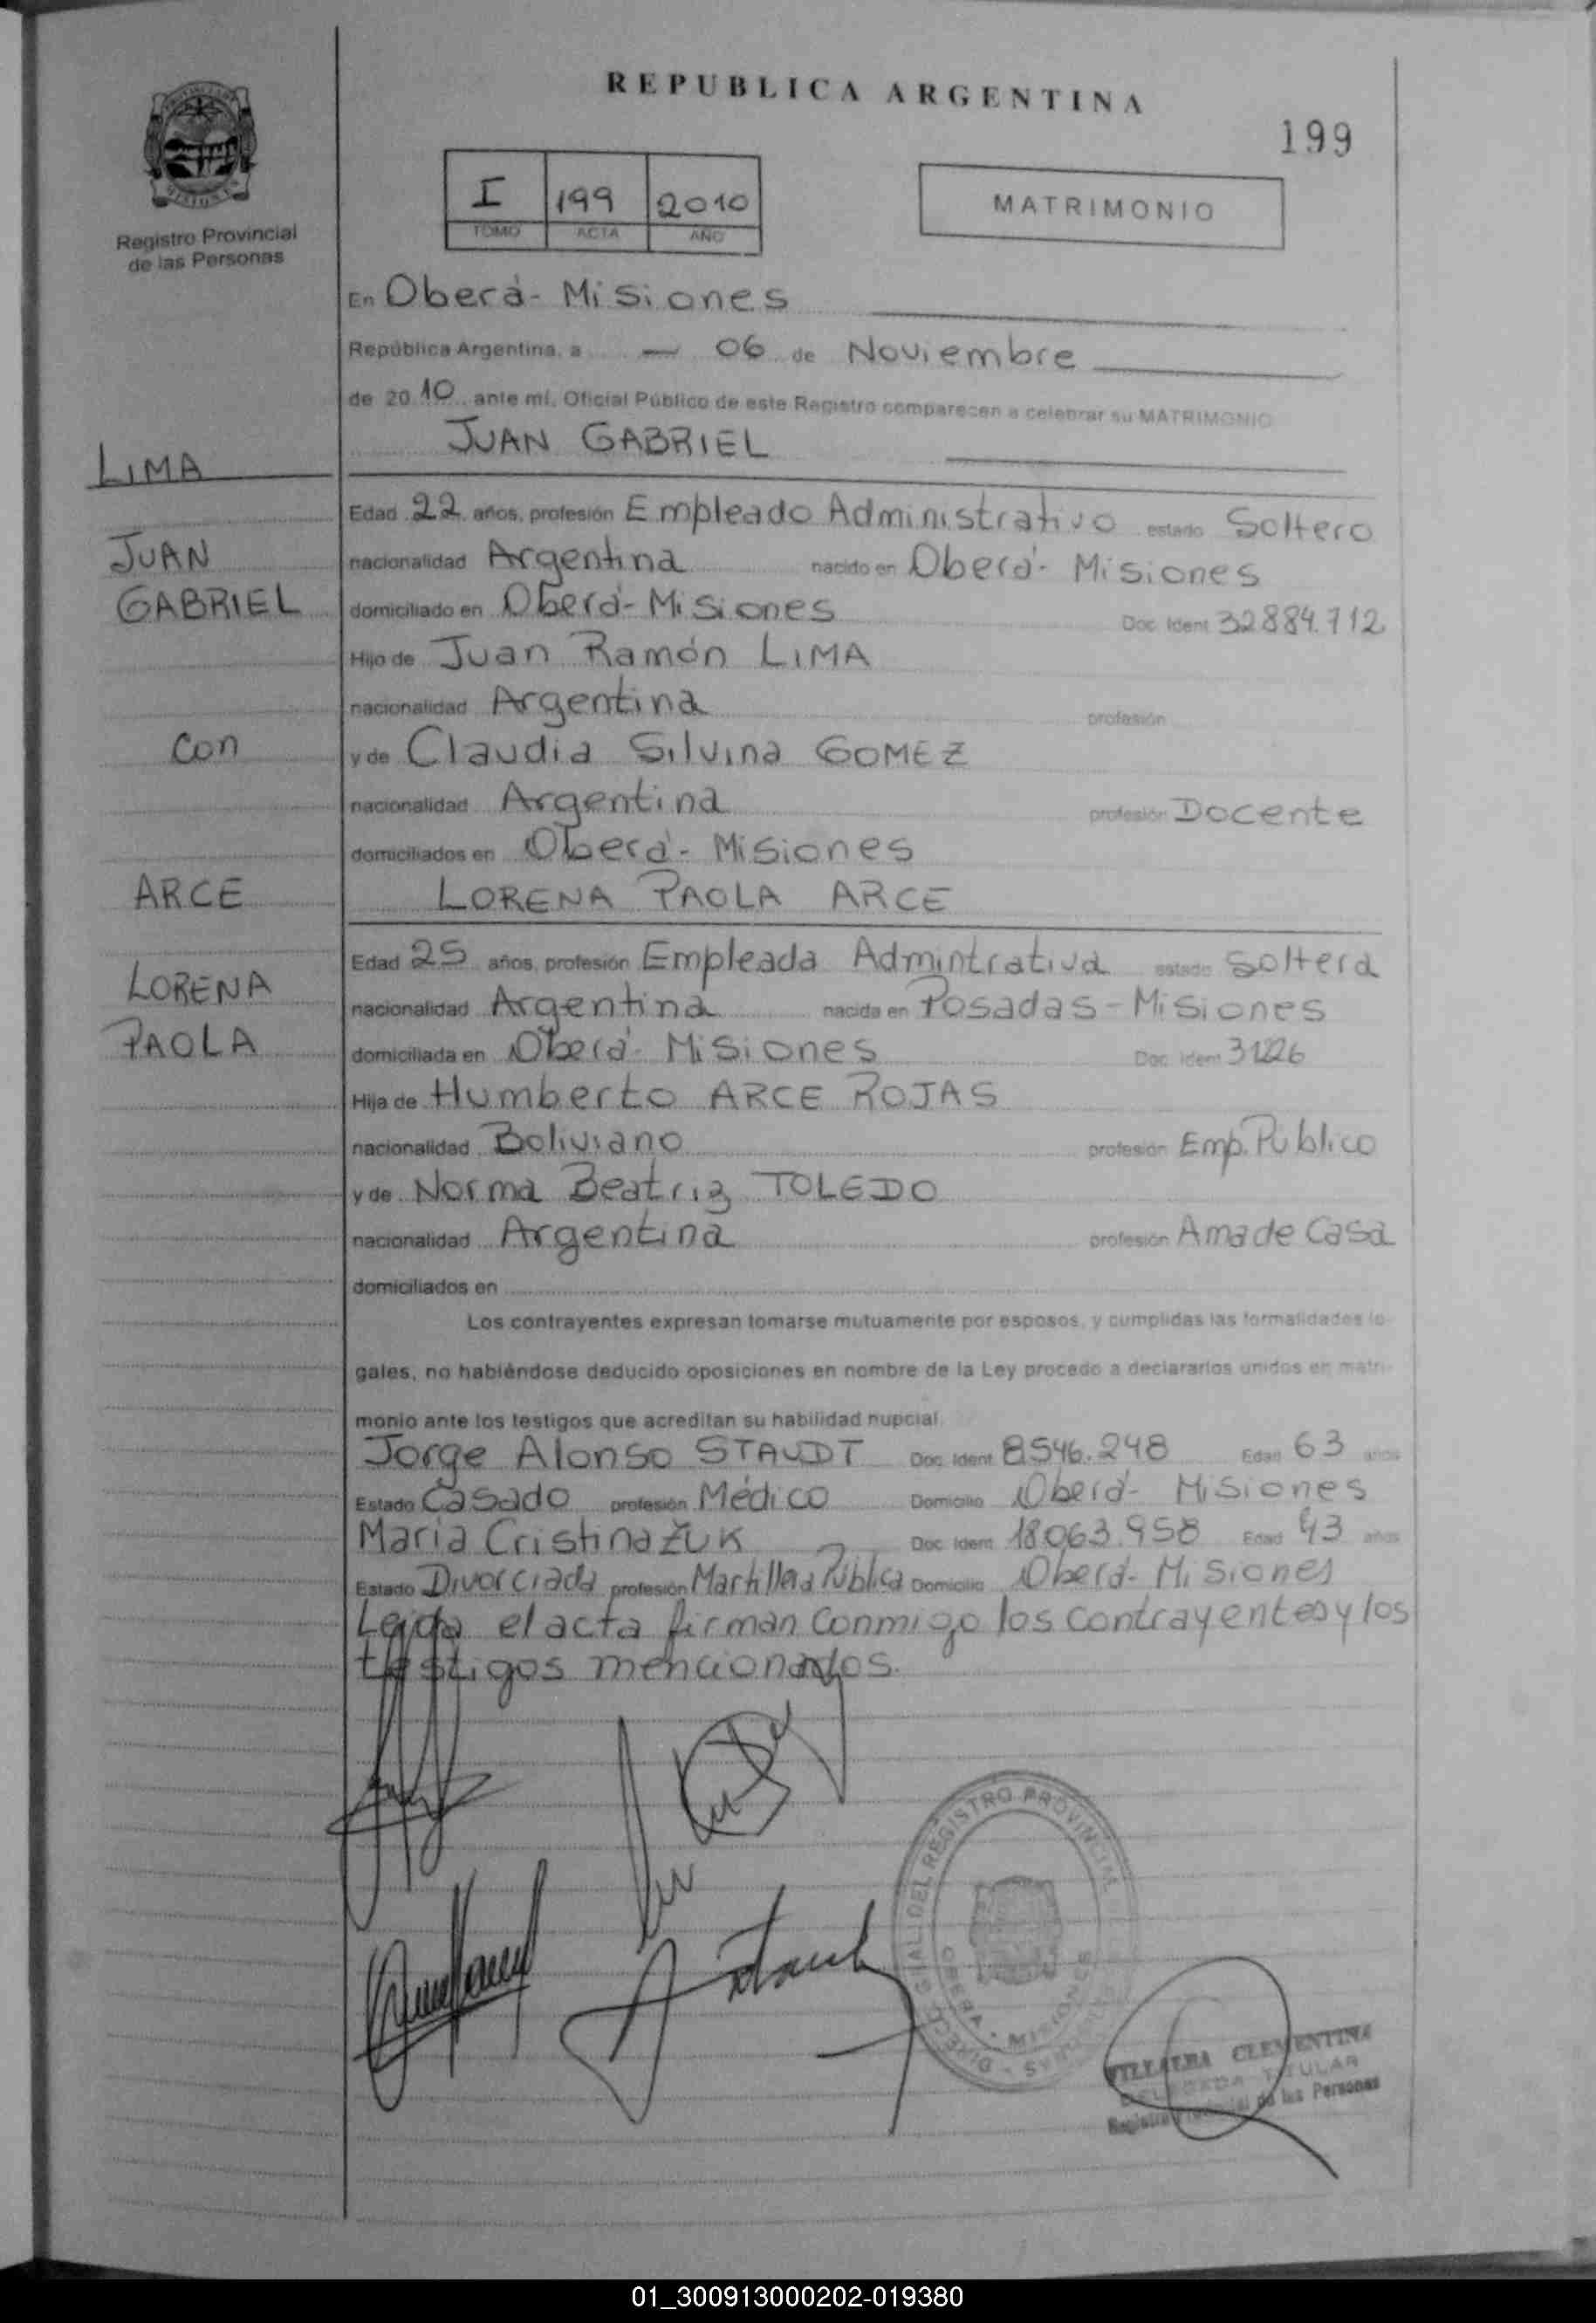 REPUBLICA ARGENTINA
199
Registro Provincial
de las Personas
I 199 2010
TOMO ACTA AÑO
MATRIMONIO
En Oberá - Misiones
República Argentina, a — 06 de Noviembre
de 2010 ante mí, Oficial Público de este Registro comparecen a celebrar su MATRIMONIO
JUAN GABRIEL
LIMA
Edad 22 años, profesión Empleado Administrativo estado Soltero
JUAN
nacionalidad Argentina nacido en Oberá - Misiones
GABRIEL
domiciliado en Oberá - Misiones Doc. Ident. 32884.712
Hijo de Juan Ramón LIMA
nacionalidad Argentina profesión
con
y de Claudia Silvina GOMEZ
nacionalidad Argentina profesión Docente
domiciliados en Oberá - Misiones
ARCE
LORENA PAOLA ARCE
Edad 25 años, profesión Empleada Admintrativa estado Soltera
LORENA
nacionalidad Argentina nacida en Posadas - Misiones
PAOLA
domiciliada en Oberá - Misiones Doc. Ident.
Hija de Humberto ARCE ROJAS
nacionalidad Boliviano profesión Emp. Público
y de Norma Beatriz TOLEDO
nacionalidad Argentina profesión Ama de Casa
domiciliados en
Los contrayentes expresan tomarse mutuamente por esposos, y cumplidas las formalidades le-
gales, no habiéndose deducido oposiciones en nombre de la Ley procedo a declararlos unidos en matri-
monio ante los testigos que acreditan su habilidad nupcial.
Jorge Alonso STAUDT Doc. Ident. 8546.248 Edad 63 años
Estado Casado profesión Médico Domicilio Oberá - Misiones
María Cristina ŽUK Doc. Ident. 18063.958 Edad 43 años
Estado Divorciada profesión Martillera Pública Domicilio Oberá - Misiones
Leída el acta firman conmigo los contrayentes y los
testigos mencionados.
DEL REGISTRO PROVINCIAL
OBERA - MISIONES
VILLALBA CLEMENTINA
DELEGADA TITULAR
Registro Provincial de las Personas
01_300913000202-019380